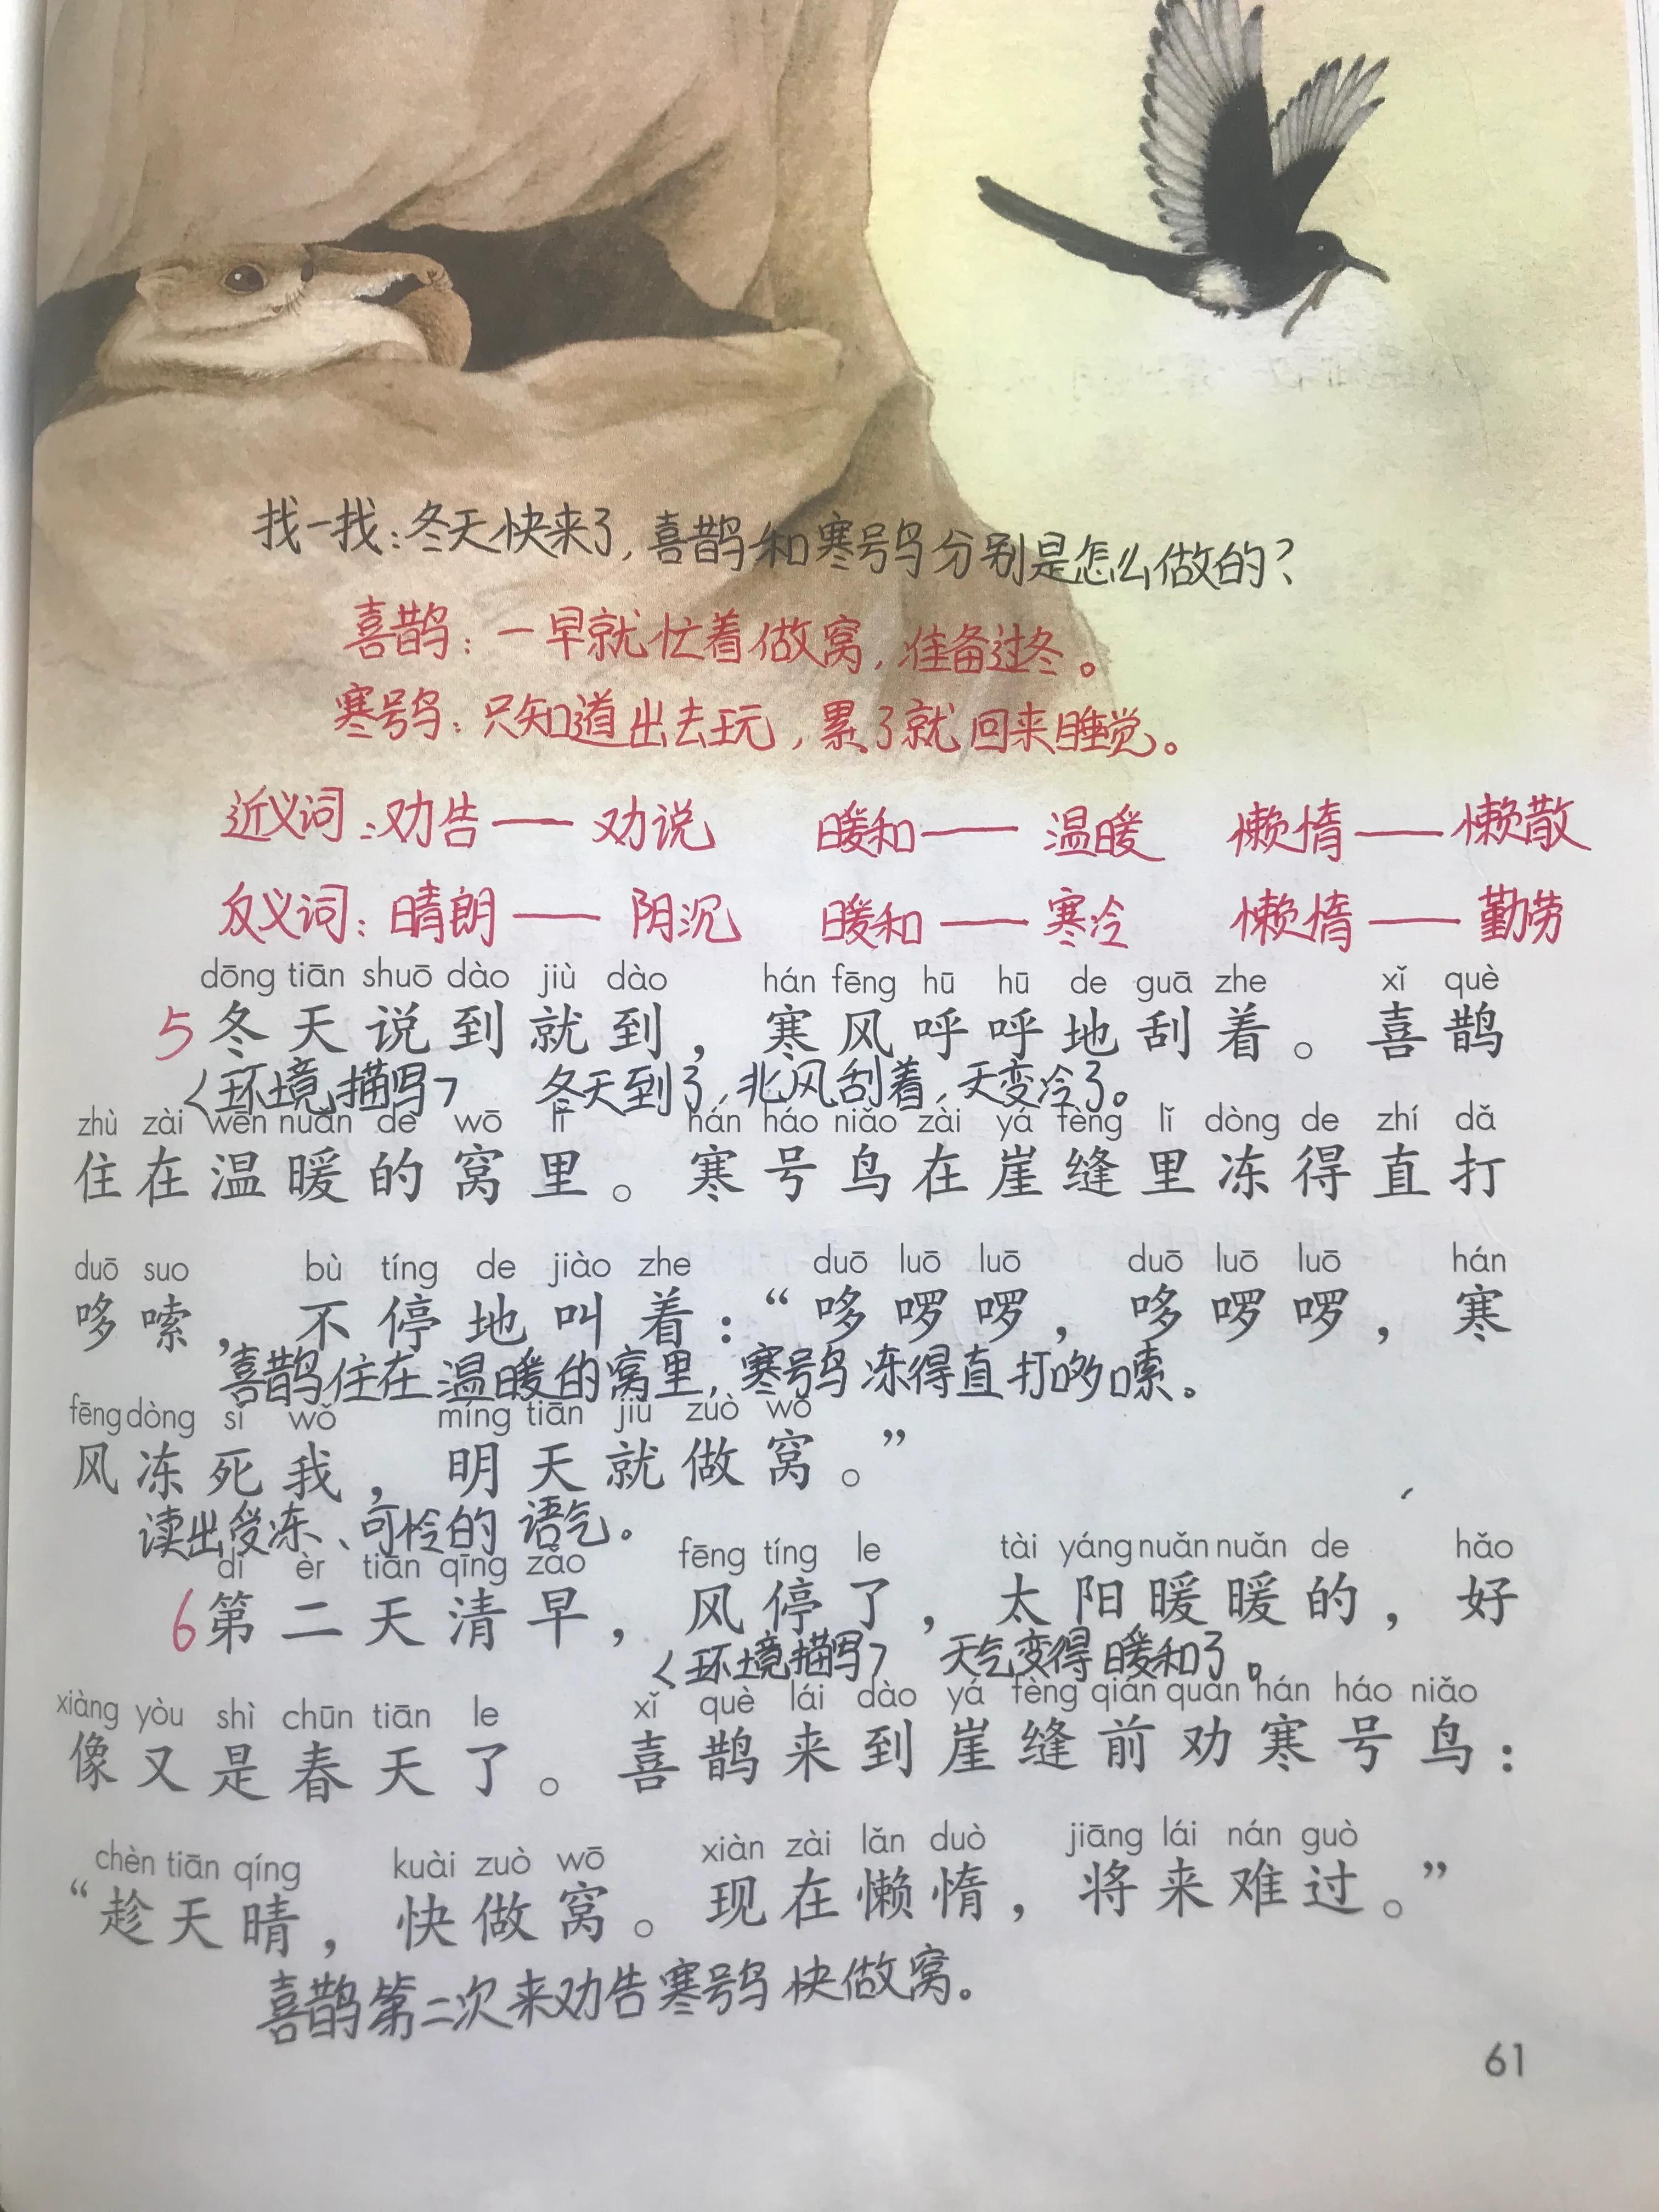 找一找：冬天快来了，喜鹊和寒号鸟分别是怎么做的？
喜鹊：一早就忙着做窝，准备过冬。
寒号鸟：只知道出去玩，累了就回来睡觉。
近义词：劝告——劝说 暖和——温暖 懒惰——懒散
反义词：晴朗——阴沉 暖和——寒冷 懒惰——勤劳
dōng tiān shuō dào jiù dào hán fēng hū hū de guā zhe xǐ què
5 冬天说到就到，寒风呼呼地刮着。喜鹊
<环境描写> 冬天到了，北风刮着，天变冷了。
zhù zài wēn nuǎn de wō lǐ hán háo niǎo zài yá fèng lǐ dòng de zhí dǎ
住在温暖的窝里。寒号鸟在崖缝里冻得直打
duō suo bù tíng de jiào zhe duō luō luō duō luō luō hán
哆嗦，不停地叫着：“哆啰啰，哆啰啰，寒
喜鹊住在温暖的窝里，寒号鸟冻得直打哆嗦。
fēng dòng sǐ wǒ míng tiān jiù zuò wō
风冻死我，明天就做窝。”
读出受冻、可怜的语气。
dì èr tiān qīng zǎo fēng tíng le tài yáng nuǎn nuǎn de hǎo
6 第二天清早，风停了，太阳暖暖的，好
<环境描写> 天气变得暖和了。
xiàng yòu shì chūn tiān le xǐ què lái dào yá fèng qián quàn hán háo niǎo
像又是春天了。喜鹊来到崖缝前劝寒号鸟：
chèn tiān qíng kuài zuò wō xiàn zài lǎn duò jiāng lái nán guò
“趁天晴，快做窝。现在懒惰，将来难过。”
喜鹊第二次来劝告寒号鸟快做窝。
61